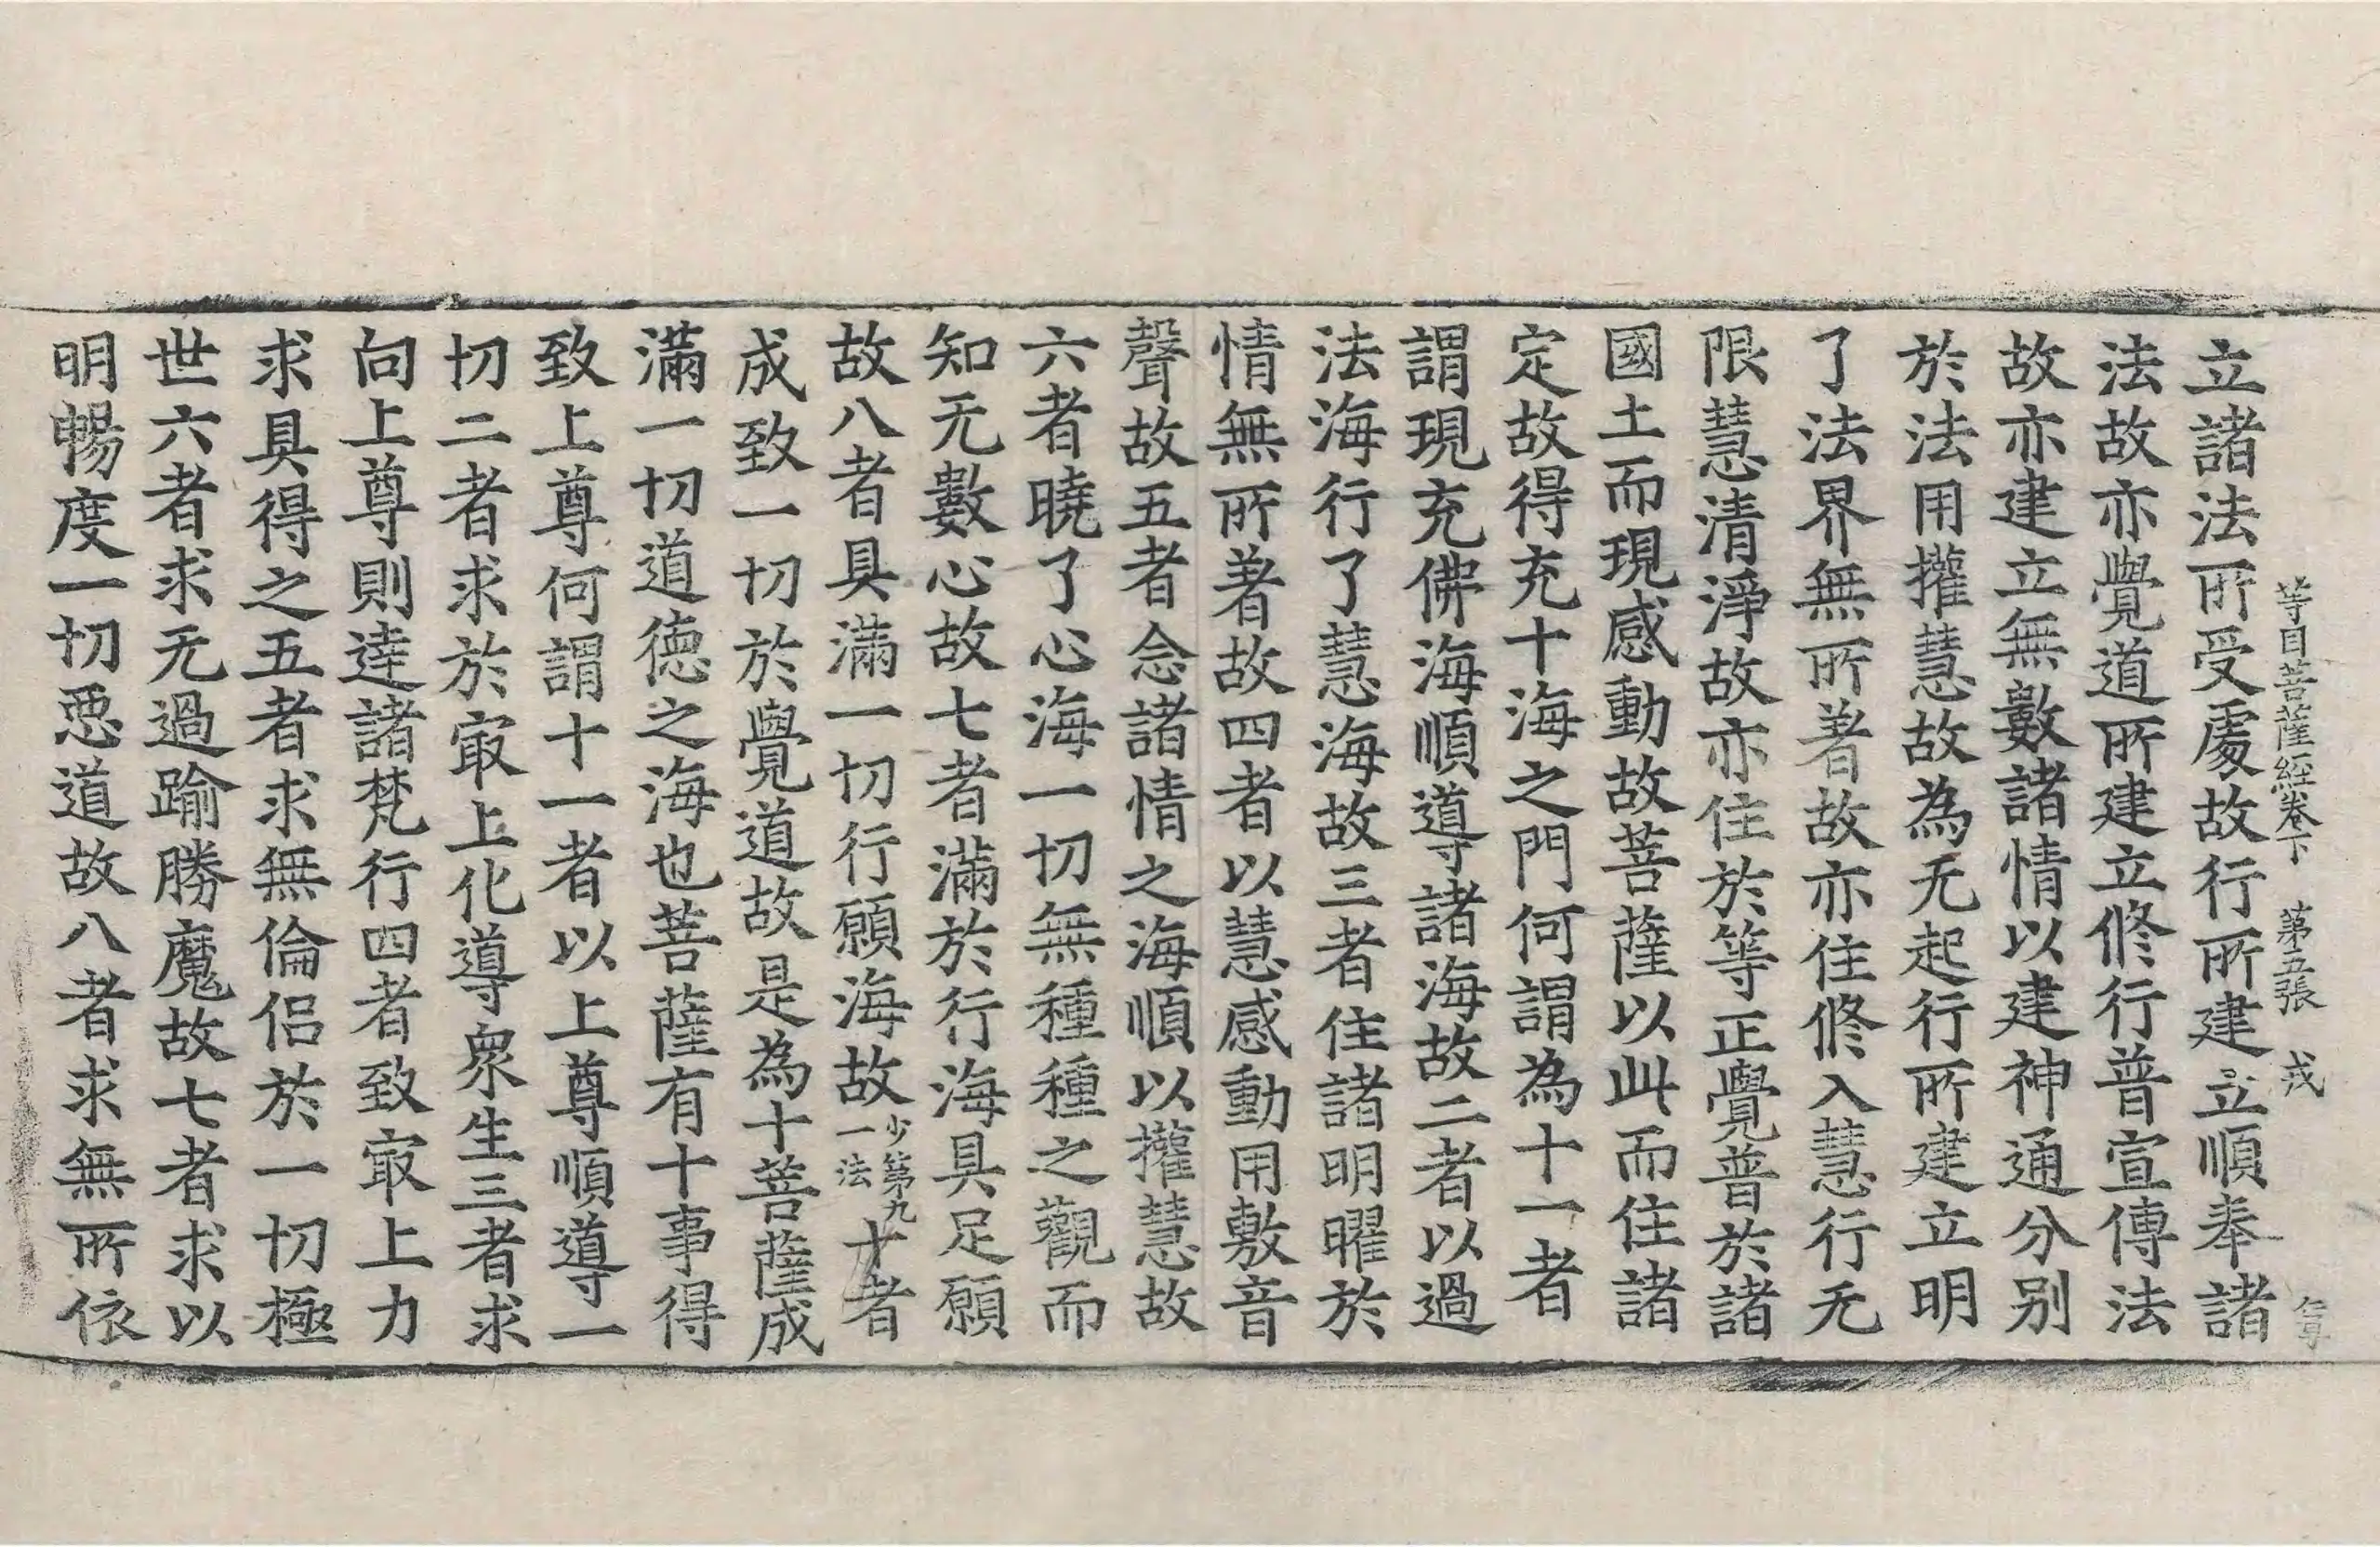 等目菩薩經卷下 第五張 戎
立諸法所受處故行所建立順奉諸
法故亦覺道所建立修行普宣傳法
故亦建立無數諸情以建神通分别
於法用權慧故為无起行所建立明
了法界無所著故亦住修入慧行无
限慧清淨故亦住於等正覺普於諸
國土而現感動故菩薩以此而住諸
定故得充十海之門何謂為十一者
謂現充佛海順導諸海故二者以過
法海行了慧海故三者住諸明曜於
情無所著故四者以慧感動用敷音
聲故五者念諸情之海順以權慧故
六者曉了心海一切無種種之觀而
知无數心故七者滿於行海具足願
故八者具滿一切行願海故少第九一法十者
成致一切於覺道故是為十菩薩成
滿一切道德之海也菩薩有十事得
致上尊何謂十一者以上尊順導一
切二者求於㝡上化導衆生三者求
向上尊則逹諸梵行四者致㝡上力
求具得之五者求無倫侣於一切極
世六者求无過踰勝魔故七者求以
明暢度一切惡道故八者求無所依